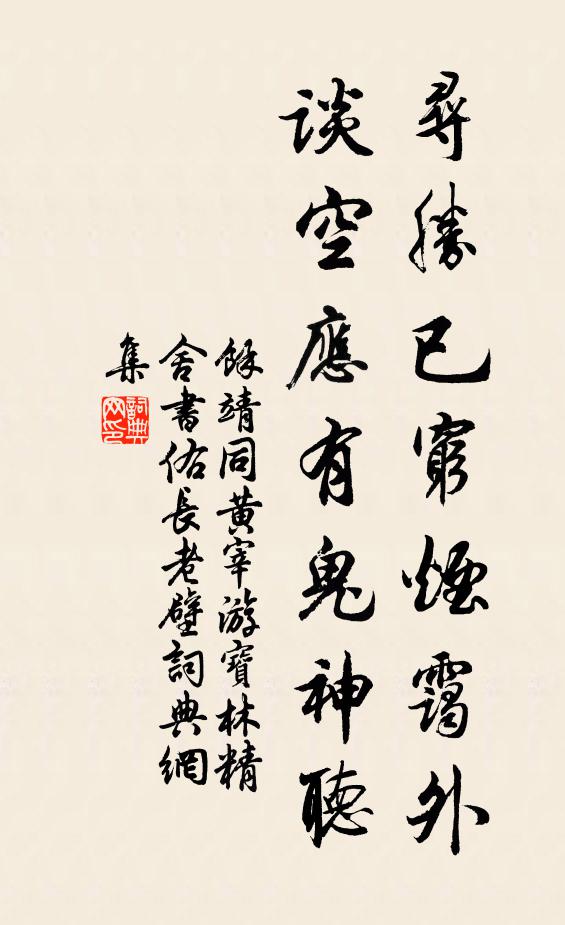 尋勝已窮煙靄外
談空應有鬼神聽
餘靖同黃宰游寶林精
舍書佑長老壁詞典網
集
詞典
网印